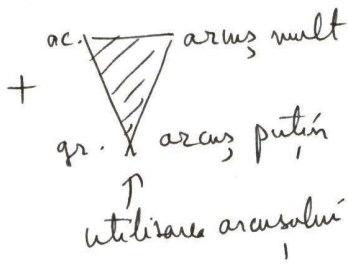 ac. arcuș mult
+
gr. arcuș puțin
↑
utilizarea arcușului